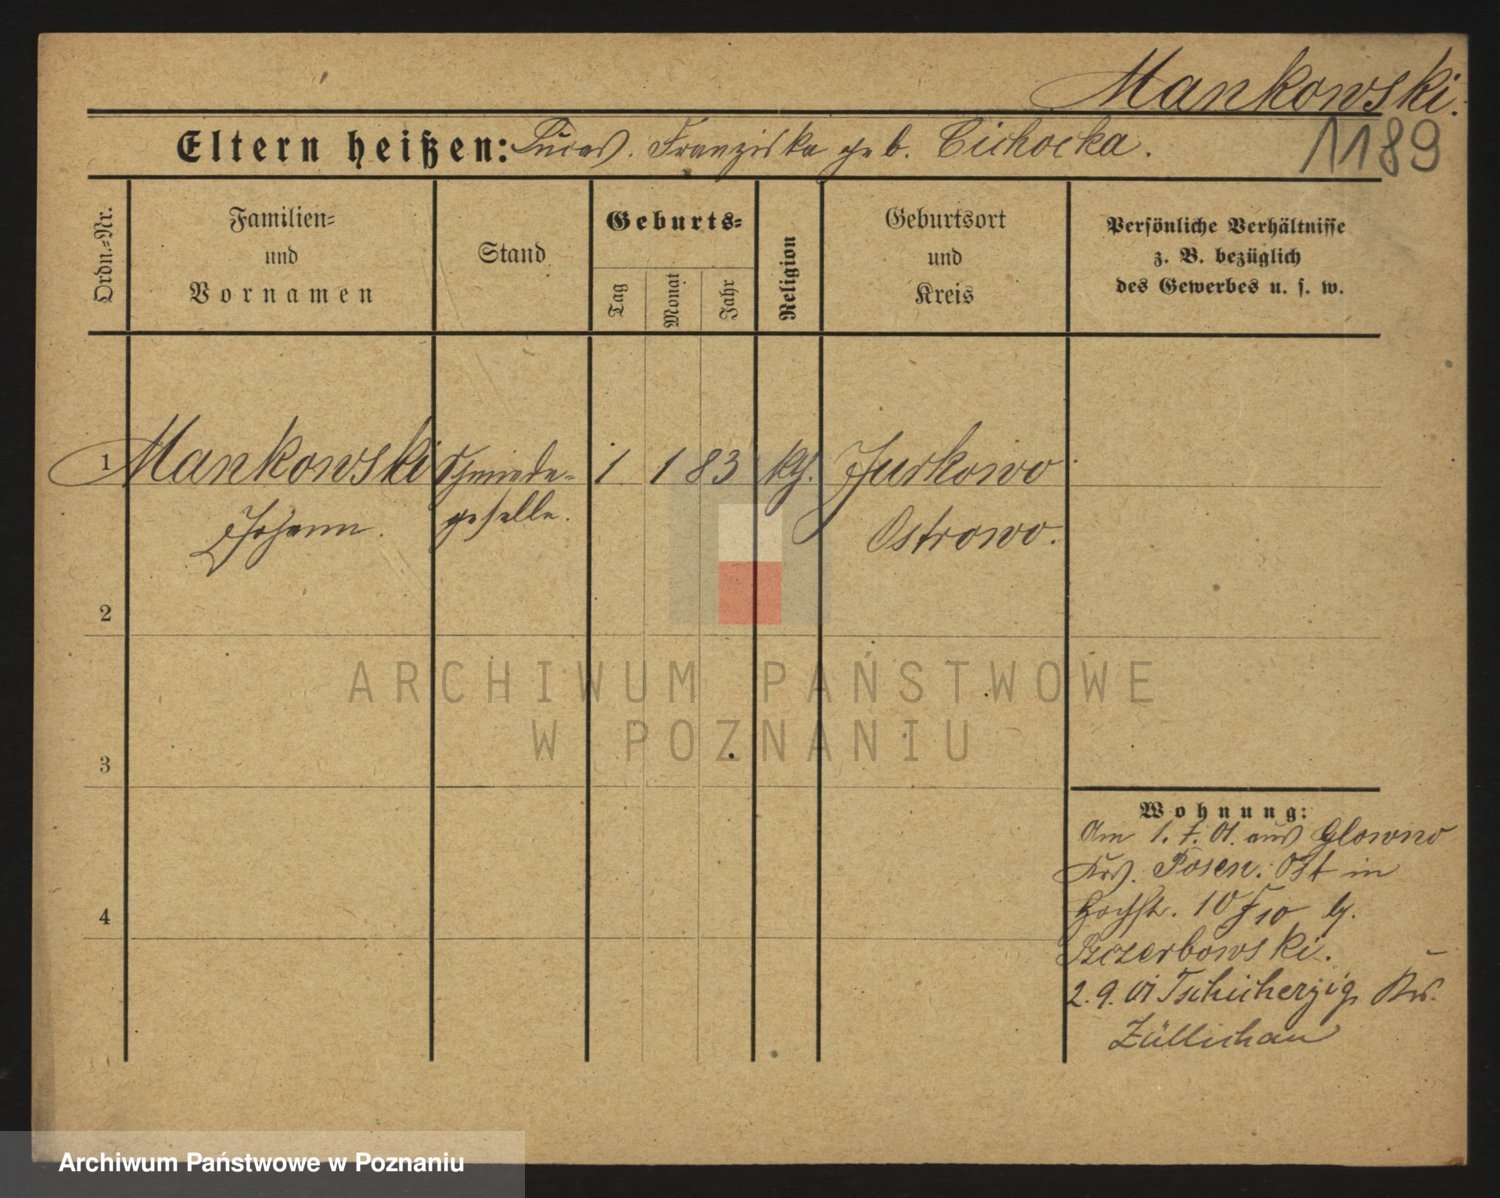 Mankowski.
1189
Eltern heißen: Lucas. Franziska geb. Cichocka.
Ordn.-Nr.
Familien-
und
Vornamen
Stand
Geburts-
Tag
Monat
Jahr
Religion
Geburtsort
und
Kreis
Persönliche Verhältnisse
z. B. bezüglich
des Gewerbes u. s. w.
1 Mankowski Schmiede- 1 1 83 kth. Jurkowo
Johann. geselle. Ostrowo.
2
ARCHIWUM PAŃSTWOWE
W POZNANIU
3
Wohnung:
Am 1. 7. 01. aus Glowno
Krs. Posen. Ost in
Hochstr. 10 b.
Szczerbowski.
4
2. 9. 01 Tschicherzig, Krs.
Züllichau
Archiwum Państwowe w Poznaniu